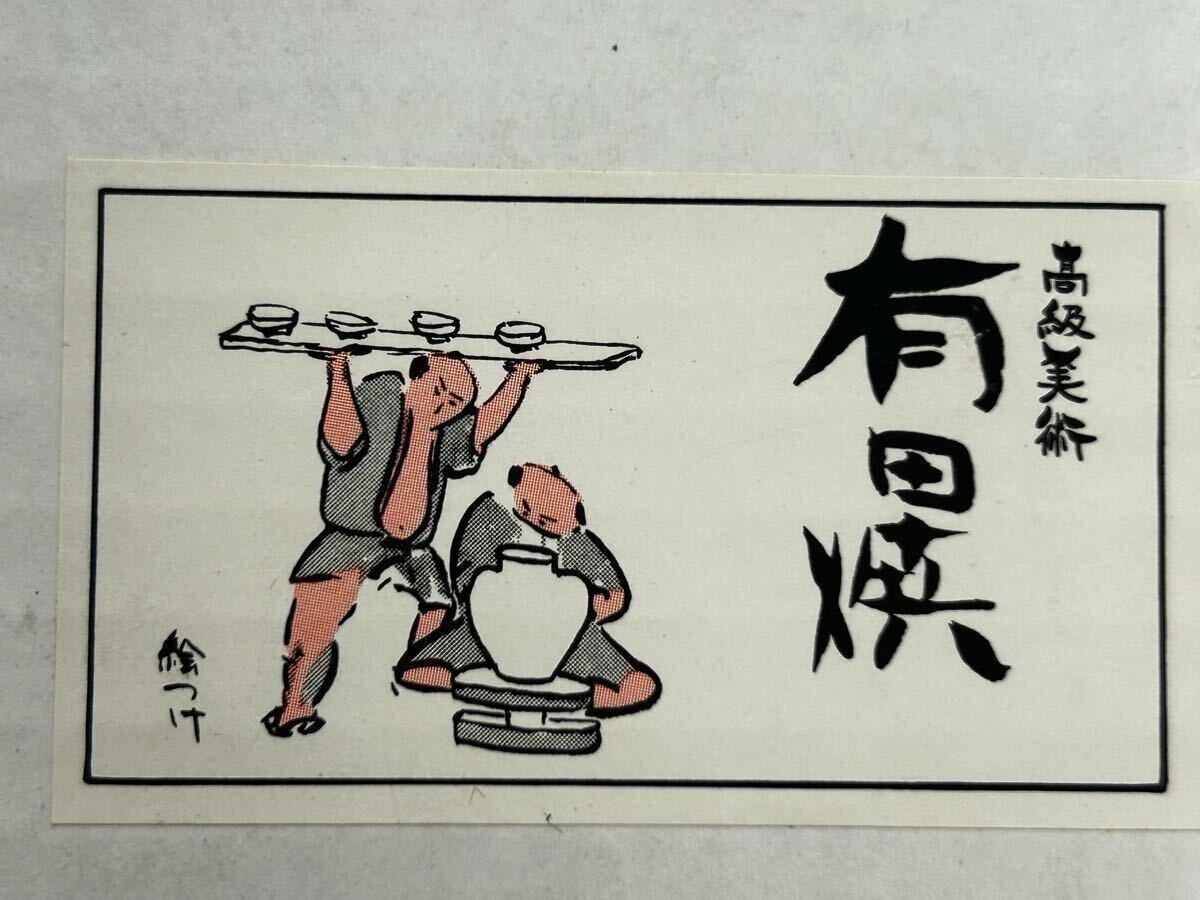 高級美術
有田焼
絵つけ